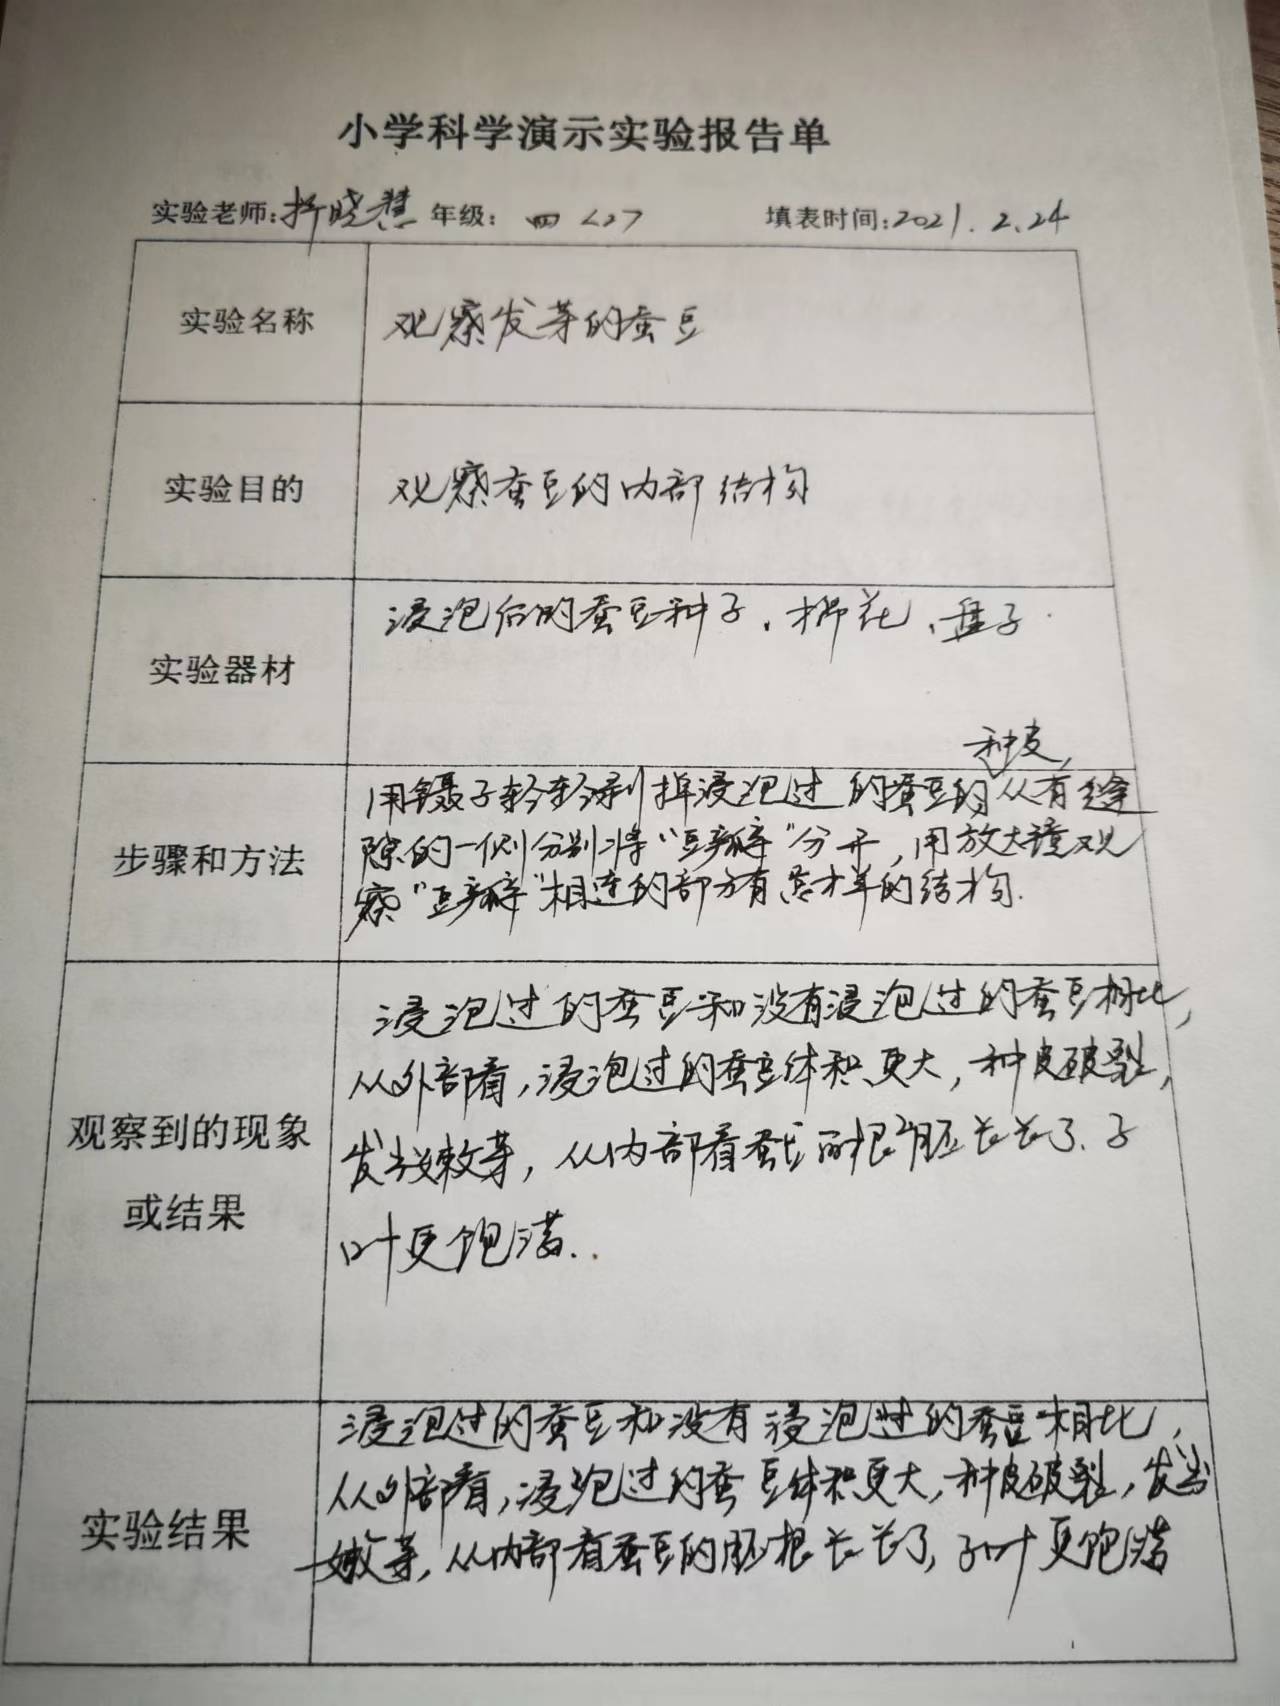 小学科学演示实验报告单
实验老师:折晓慧 年级: 四<2> 填表时间:2021.2.24
实验名称 观察发芽的蚕豆
实验目的 观察蚕豆的内部结构
实验器材 浸泡后的蚕豆种子、棉花、盘子
种皮,
用镊子轻轻剥掉浸泡过的蚕豆的从有缝
步骤和方法 隙的一侧分别将“豆瓣”分开,用放大镜观
察“豆瓣”相连的部分有怎样的结构.
浸泡过的蚕豆和没有浸泡过的蚕豆相比,
从外部看,浸泡过的蚕豆体积更大,种皮破裂,
观察到的现象 发出嫩芽,从内部看蚕豆的根胚长长了.子
或结果 叶更饱满.
浸泡过的蚕豆和没有浸泡过的蚕豆相比,
从外部看,浸泡过的蚕豆体积更大,种皮破裂,发出
实验结果 嫩芽,从内部看蚕豆的胚根长长了,子叶更饱满